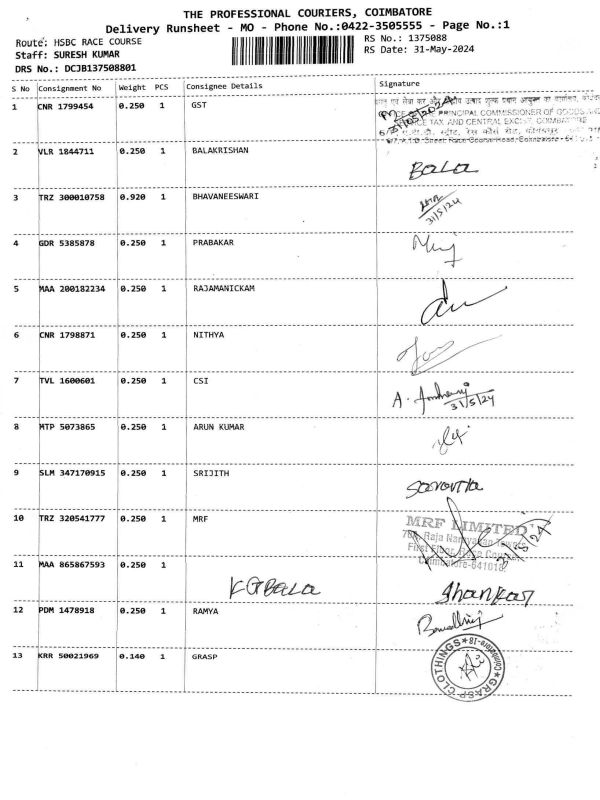 THE PROFESSIONAL COURIERS, COIMBATORE
Delivery Runsheet - MO - Phone No.:0422-3505555 - Page No.:1
Route: HSBC RACE COURSE
RS No.: 1375088
Staff: SURESH KUMAR
RS Date: 31-May-2024
DRS No.: DCJB137508801
S No Consignment No Weight PCS Consignee Details Signature
1 CNR 1799454 0.250 1 GST
PRINCIPAL COMMISSIONER OF GOODS AND
TAX AND CENTRAL EXCISE, COIMBATORE
2 VLR 1844711 0.250 1 BALAKRISHAN Bala
3 TRZ 300010758 0.920 1 BHAVANEESWARI
31/5/24
4 GDR 5385878 0.250 1 PRABAKAR
5 MAA 200182234 0.250 1 RAJAMANICKAM
6 CNR 1798871 0.250 1 NITHYA
7 TVL 1600601 0.250 1 CSI A.
31/5/24
8 MTP 5073865 0.250 1 ARUN KUMAR
9 SLM 347170915 0.250 1 SRIJITH
10 TRZ 320541777 0.250 1 MRF MRF LIMITED
Raja Narayanan Towers
First Floor, Race Course
Coimbatore-641018
31/5/24
11 MAA 865867593 0.250 1 KGBala Shankar
12 PDM 1478918 0.250 1 RAMYA
13 KRR 50021969 0.140 1 GRASP GRASP CLOTHINGS * Coimbatore-18 *